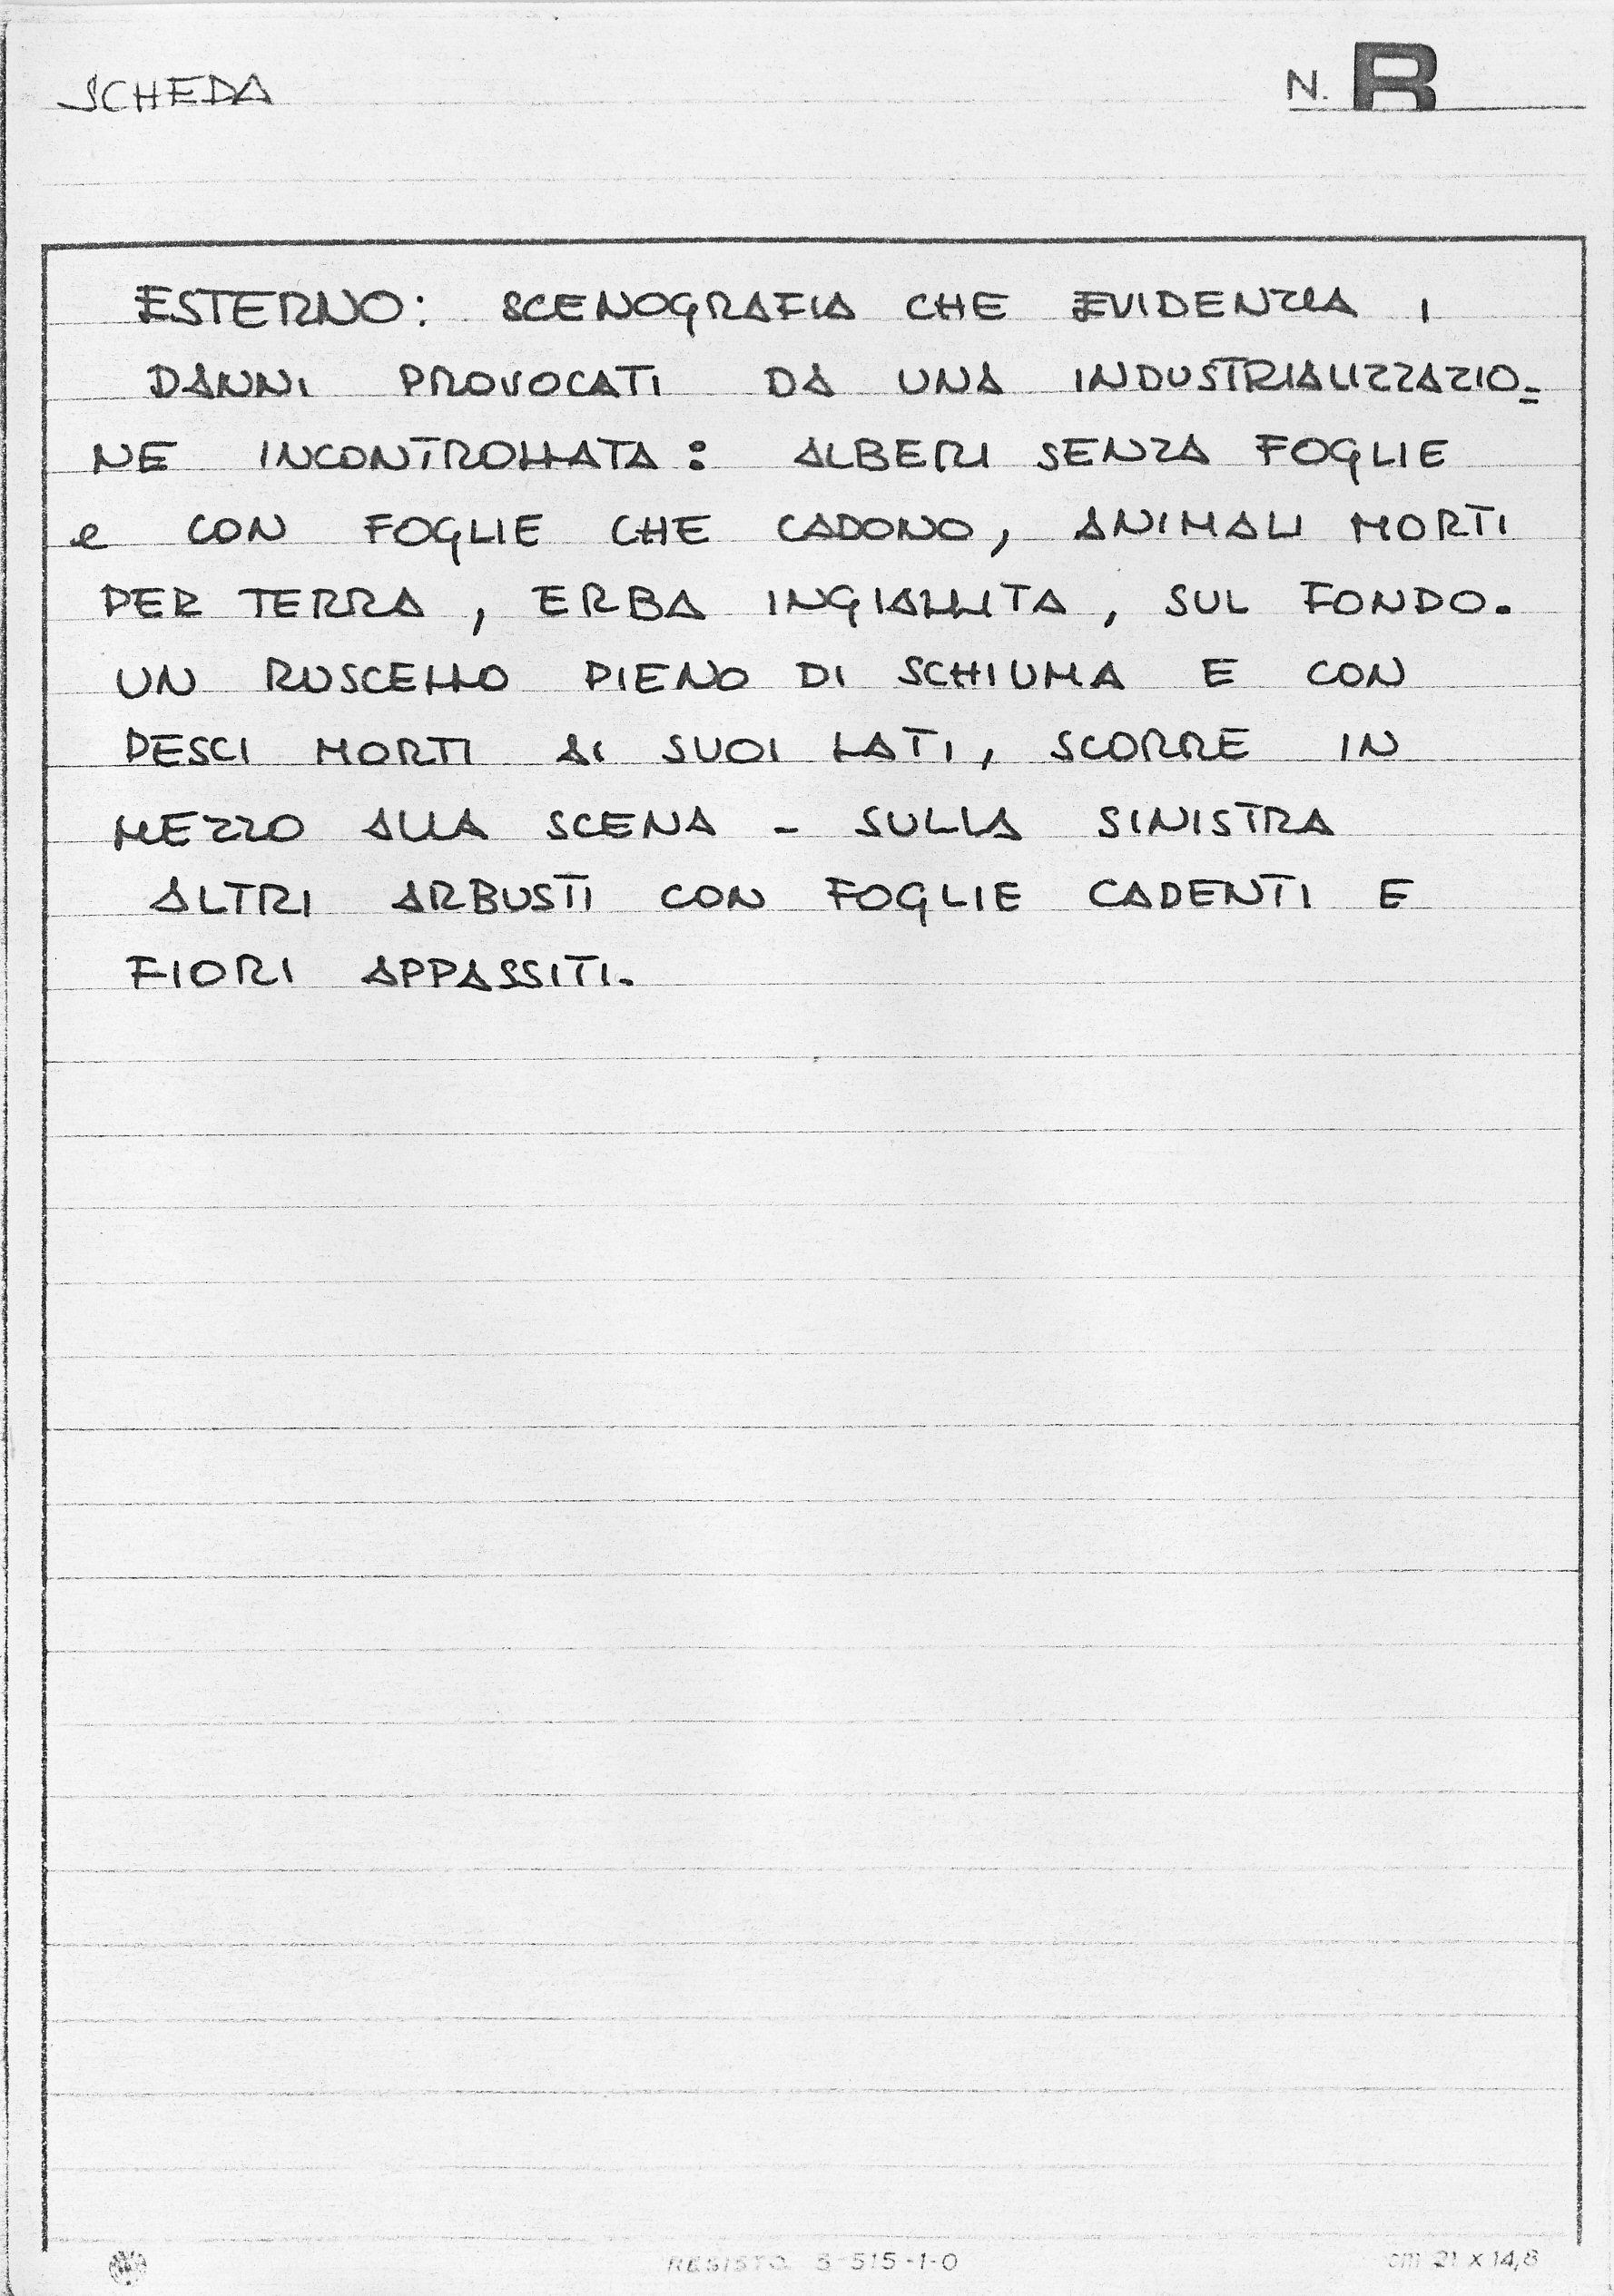 SCHEDA N. R
ESTERNO: SCENOGRAFIA CHE EVIDENZIA I
DANNI PROVOCATI DA UNA INDUSTRIALIZZAZIO=
NE INCONTROLLATA: ALBERI SENZA FOGLIE
e CON FOGLIE CHE CADONO, ANIMALI MORTI
PER TERRA, ERBA INGIALLITA, SUL FONDO.
UN RUSCELLO PIENO DI SCHIUMA E CON
PESCI MORTI AI SUOI LATI, SCORRE IN
MEZZO ALLA SCENA - SULLA SINISTRA
ALTRI ARBUSTI CON FOGLIE CADENTI E
FIORI APPASSITI.
RESISTO S-515-1-0 cm 21 x 14,8